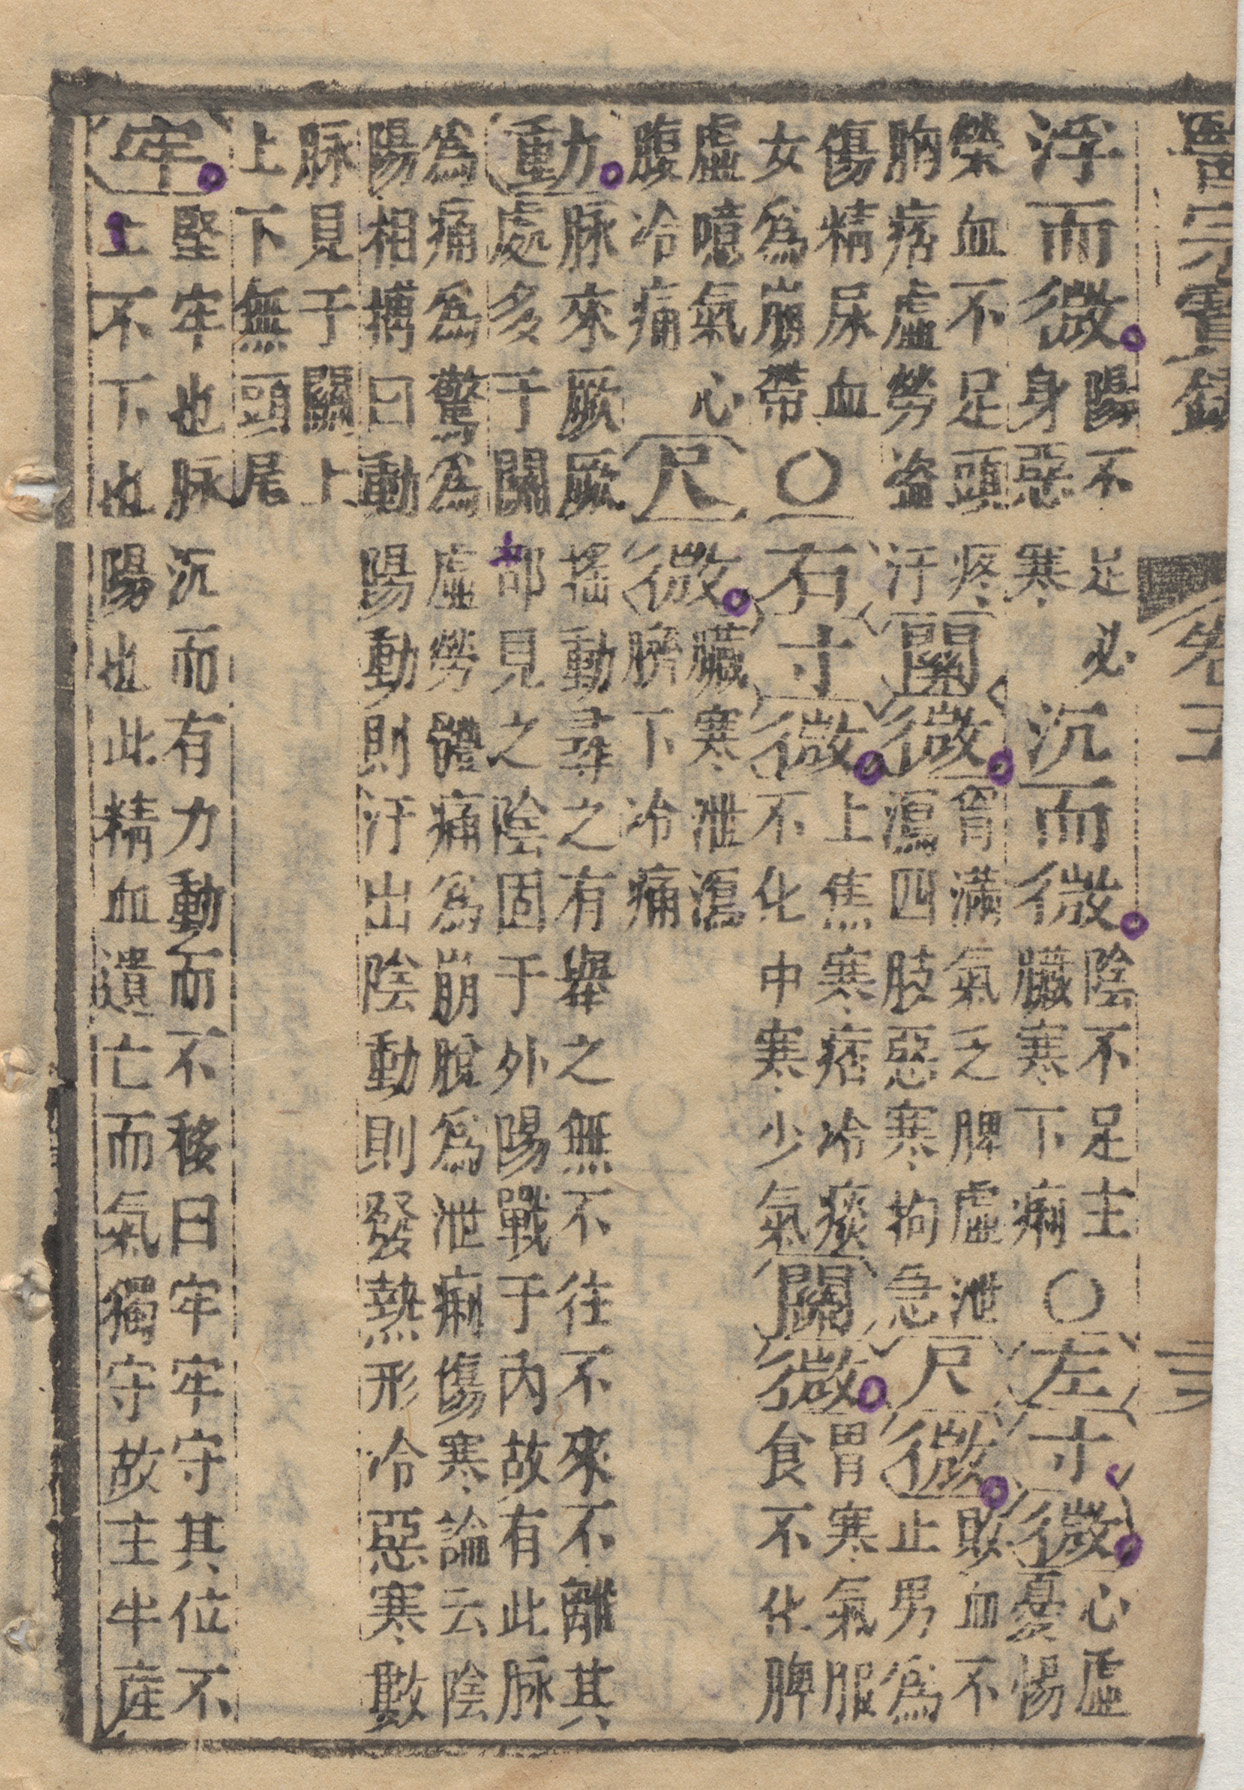 醫宗寶鏡 卷五 三
浮而微 陽不足必身惡寒 沉而微 陰不足主臟寒下痢 ○左寸微 心虛憂惕
榮血不足頭疼胸痞虛勞盜汗 關微 胷滿氣乏脾虛泄瀉四肢惡寒拘急 尺微 敗血不止男為
傷精尿血女為崩帶 ○右寸微 上焦寒痞冷痰不化中寒少氣 關微 胃寒氣服食不化脾
虛噫氣心腹冷痛 尺微 臟寒泄瀉臍下冷痛
動脉來厥厥搖動尋之有舉之無不往不來不離其
處多于關部見之陰固于外陽戰于內故有此脉
為痛為驚為虛勞體痛為崩脫為泄痢傷寒論云陰
陽相搏曰動陽動則汗出陰動則發熱形冷惡寒數
脉見于關上
上下無頭尾
牢 堅牢也脉沉而有力動而不移曰牢牢守其位不
上不下也陽也此精血遺亡而氣獨守故主牛產